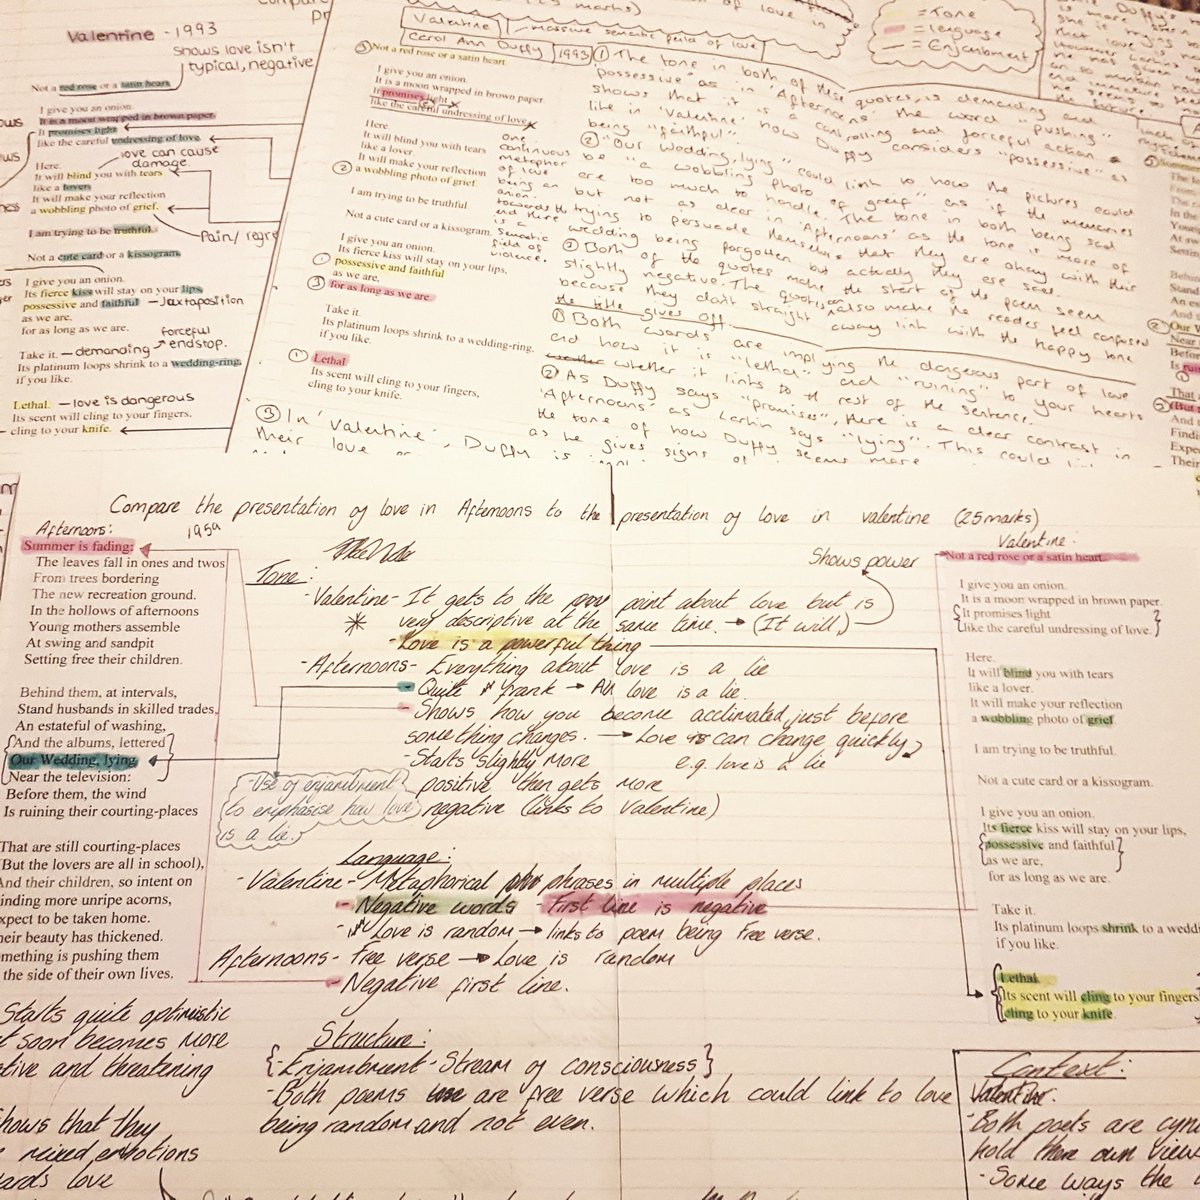 Valentine - 1993
shows love isn't
typical, negative
Not a red rose or a satin heart.
I give you an onion.
It is a moon wrapped in brown paper.
It promises light
like the careful undressing of love.
love can cause
damage.
Here.
It will blind you with tears
like a lover.
It will make your reflection
a wobbling photo of grief.
Pain/regre
I am trying to be truthful.
Not a cute card or a kissogram.
I give you an onion.
Its fierce kiss will stay on your lips,
possessive and faithful - Juxtaposition
as we are,
for as long as we are.
forceful
endstop.
Take it. - demanding
Its platinum loops shrink to a wedding-ring,
if you like.
Lethal. - love is dangerous
Its scent will cling to your fingers,
cling to your knife.
Valentine
massive semantic field of love
Carol Ann Duffy 1993
③ Not a red rose or a satin heart.
I give you an onion.
It is a moon wrapped in brown paper.
It promises light
like the careful undressing of love.
Here.
It will blind you with tears
like a lover.
It will make your reflection
② a wobbling photo of grief.
I am trying to be truthful.
Not a cute card or a kissogram.
I give you an onion.
Its fierce kiss will stay on your lips,
possessive and faithful
as we are,
③ for as long as we are.
Take it.
Its platinum loops shrink to a wedding-ring,
if you like.
① Lethal.
Its scent will cling to your fingers,
cling to your knife.
one
continuous
metaphor
of love
being an
onion.
and there
is a
semantic
field of
violence.
= Tone
= language
= Enjambment
① The tone in both of these quotes, is demanding and
"possessive" as in 'Afternoons' the word "pushing"
shows that it is a controlling and forceful action
like in 'Valentine' how Duffy considers "possessive" as
being "faithful".
② "Our Wedding, lying" could link to how the pictures could
be "a wobbling photo of grief" as if the memories
are too much to handle. The tone in both being sad
but not as clear in 'Afternoons' as the tone is more of
trying to persuade themselves that they are okay with their
wedding being forgotten but actually they are sad.
③ Both of the quotes make the start of the poem seem
slightly negative. The quotes can also make the readers feel confused
because they don't straight away link with the happy tone
the title gives off.
① Both words are implying the dangerous part of love
and how it is "lethal" and "ruining" to your hearts
whether it links to the rest of the sentence.
② As Duffy says "promises", there is a clear contrast in
'Afternoons' as Larkin says "lying". This could
the tone of how Duffy seems more
as he gives signs of
③ In 'Valentine', Duffy is
their love
Compare the presentation of love in Afternoons to the presentation of love in valentine (25marks)
Afternoons: 1959
Summer is fading:
The leaves fall in ones and twos
From trees bordering
The new recreation ground.
In the hollows of afternoons
Young mothers assemble
At swing and sandpit
Setting free their children.
Behind them, at intervals,
Stand husbands in skilled trades,
An estateful of washing,
And the albums, lettered
Our Wedding, lying
Near the television:
Before them, the wind
Is ruining their courting-places
That are still courting-places
(But the lovers are all in school),
And their children, so intent on
inding more unripe acorns,
xpect to be taken home.
heir beauty has thickened.
mething is pushing them
the side of their own lives.
Tone:
- Valentine - It gets to the point about love but is
very descriptive at the same time. → (It will)
Shows power
- Love is a powerful thing
- Afternoons - Everything about love is a lie
- Quite frank → All love is a lie.
- Shows how you become acclimated just before
something changes. → Love can change quickly
e.g. love is a lie
- Starts slightly more
positive then gets more
negative (links to Valentine)
- Use of enjambment
to emphasise how love
is a lie.
Language:
- Valentine - Metaphorical phrases in multiple places
- Negative words - First line is negative
- Love is random → links to poem being free verse.
Afternoons - Free verse → Love is random
- Negative first line.
Structure:
{- Enjambment - Stream of consciousness}
- Both poems are free verse which could link to love
being random and not even.
Starts quite optimistic
t soon becomes more
ative and threatening
hows that they
mixed emotions
ards love
Valentine:
Not a red rose or a satin heart.
I give you an onion.
It is a moon wrapped in brown paper.
It promises light
like the careful undressing of love.
Here.
It will blind you with tears
like a lover.
It will make your reflection
a wobbling photo of grief.
I am trying to be truthful.
Not a cute card or a kissogram.
I give you an onion.
Its fierce kiss will stay on your lips,
possessive and faithful
as we are,
for as long as we are.
Take it.
Its platinum loops shrink to a weddi
if you like.
Lethal.
Its scent will cling to your fingers
cling to your knife.
Context:
Valentine:
- Both poets are cyni
hold their own view
- Some ways the